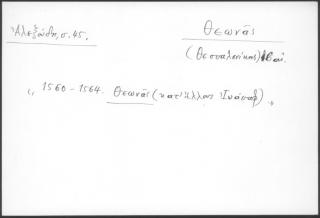 Ἀλεξούδη, σ. 45.
Θεωνᾶς
(Θεσσαλονίκης)
" 1560 - 1564. Θεωνᾶς (κατ' ἄλλους Ἰωάσαφ) "